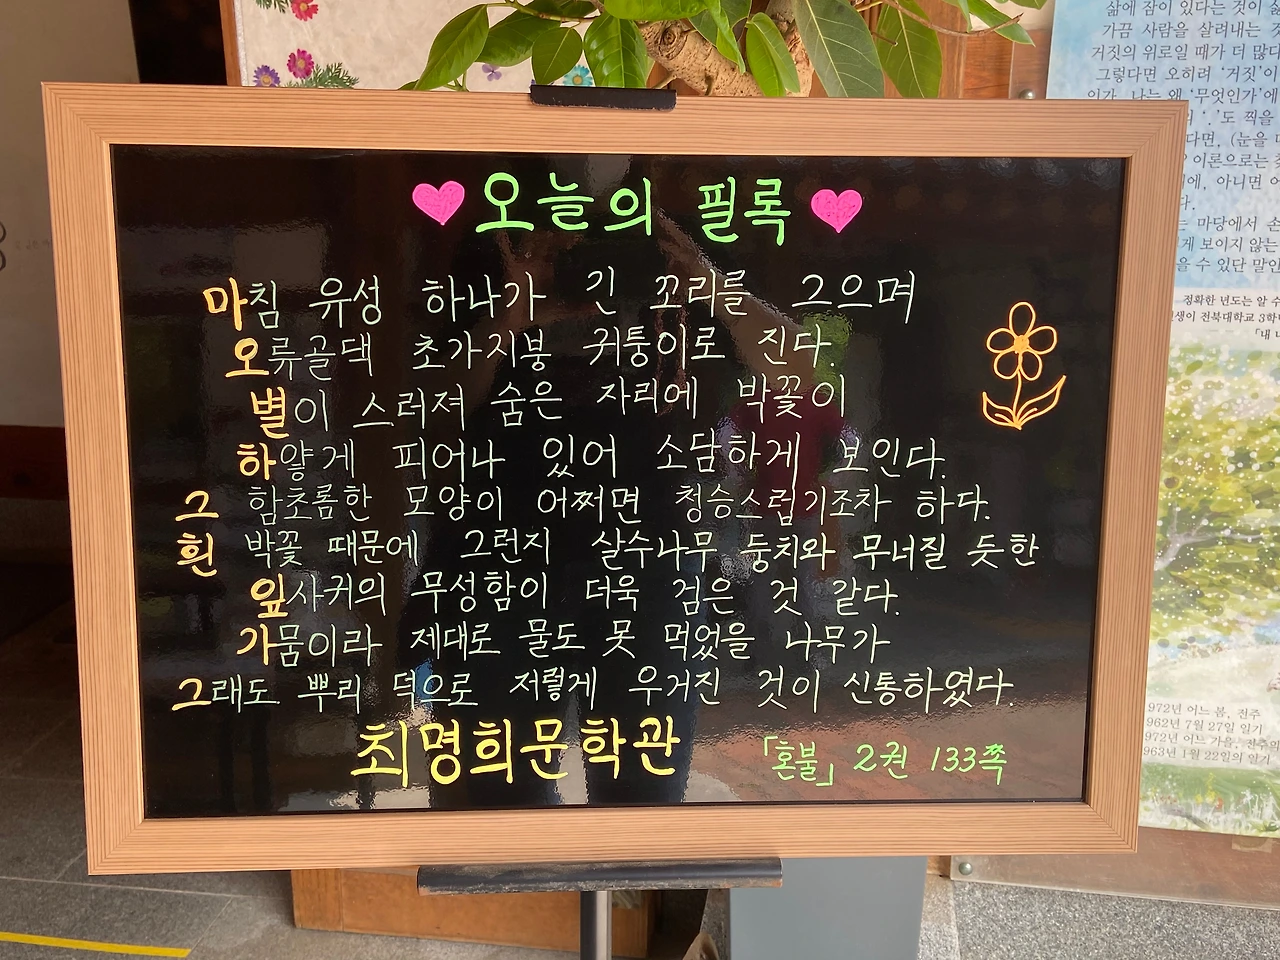 오늘의 필록
마침 유성 하나가 긴 꼬리를 그으며
오류골댁 초가지붕 귀퉁이로 진다.
별이 스러져 숨은 자리에 박꽃이
하얗게 피어나 있어 소담하게 보인다.
그 함초롬한 모양이 어쩌면 청승스럽기조차 하다.
흰 박꽃 때문에 그런지 살수나무 둥치와 무너질 듯한
잎사귀의 무성함이 더욱 검은 것 같다.
가뭄이라 제대로 물도 못 먹었을 나무가
그래도 뿌리 덕으로 저렇게 우거진 것이 신통하였다.
최명희문학관
「혼불」 2권 133쪽
삶에 잠이 있다는 것이
가끔 사람을 살려내는
거짓의 위로일 때가 더 많다
그렇다면 오히려 '거짓'이
나는 왜 '무엇인가'에
'.'도 찍을
다면, (눈을
이론으로는
에, 아니면
다.
는 마당에서 손
게 보이지 않는
을 수 있단 말인
정확한 년도는 알 수
생이 전북대학교 3학
「내
972년 어느 봄, 전주
962년 7월 27일 일기
972년 어느 가을, 전주의
963년 1월 22일의 일기